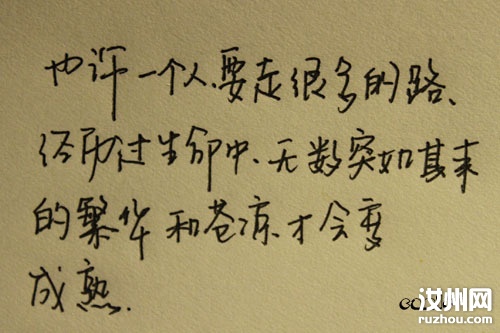 也许一个人、要走很多的路、
经历过生命中、无数突如其来
的繁华和苍凉.才会变
成熟.
汝州网
ruzhou.com